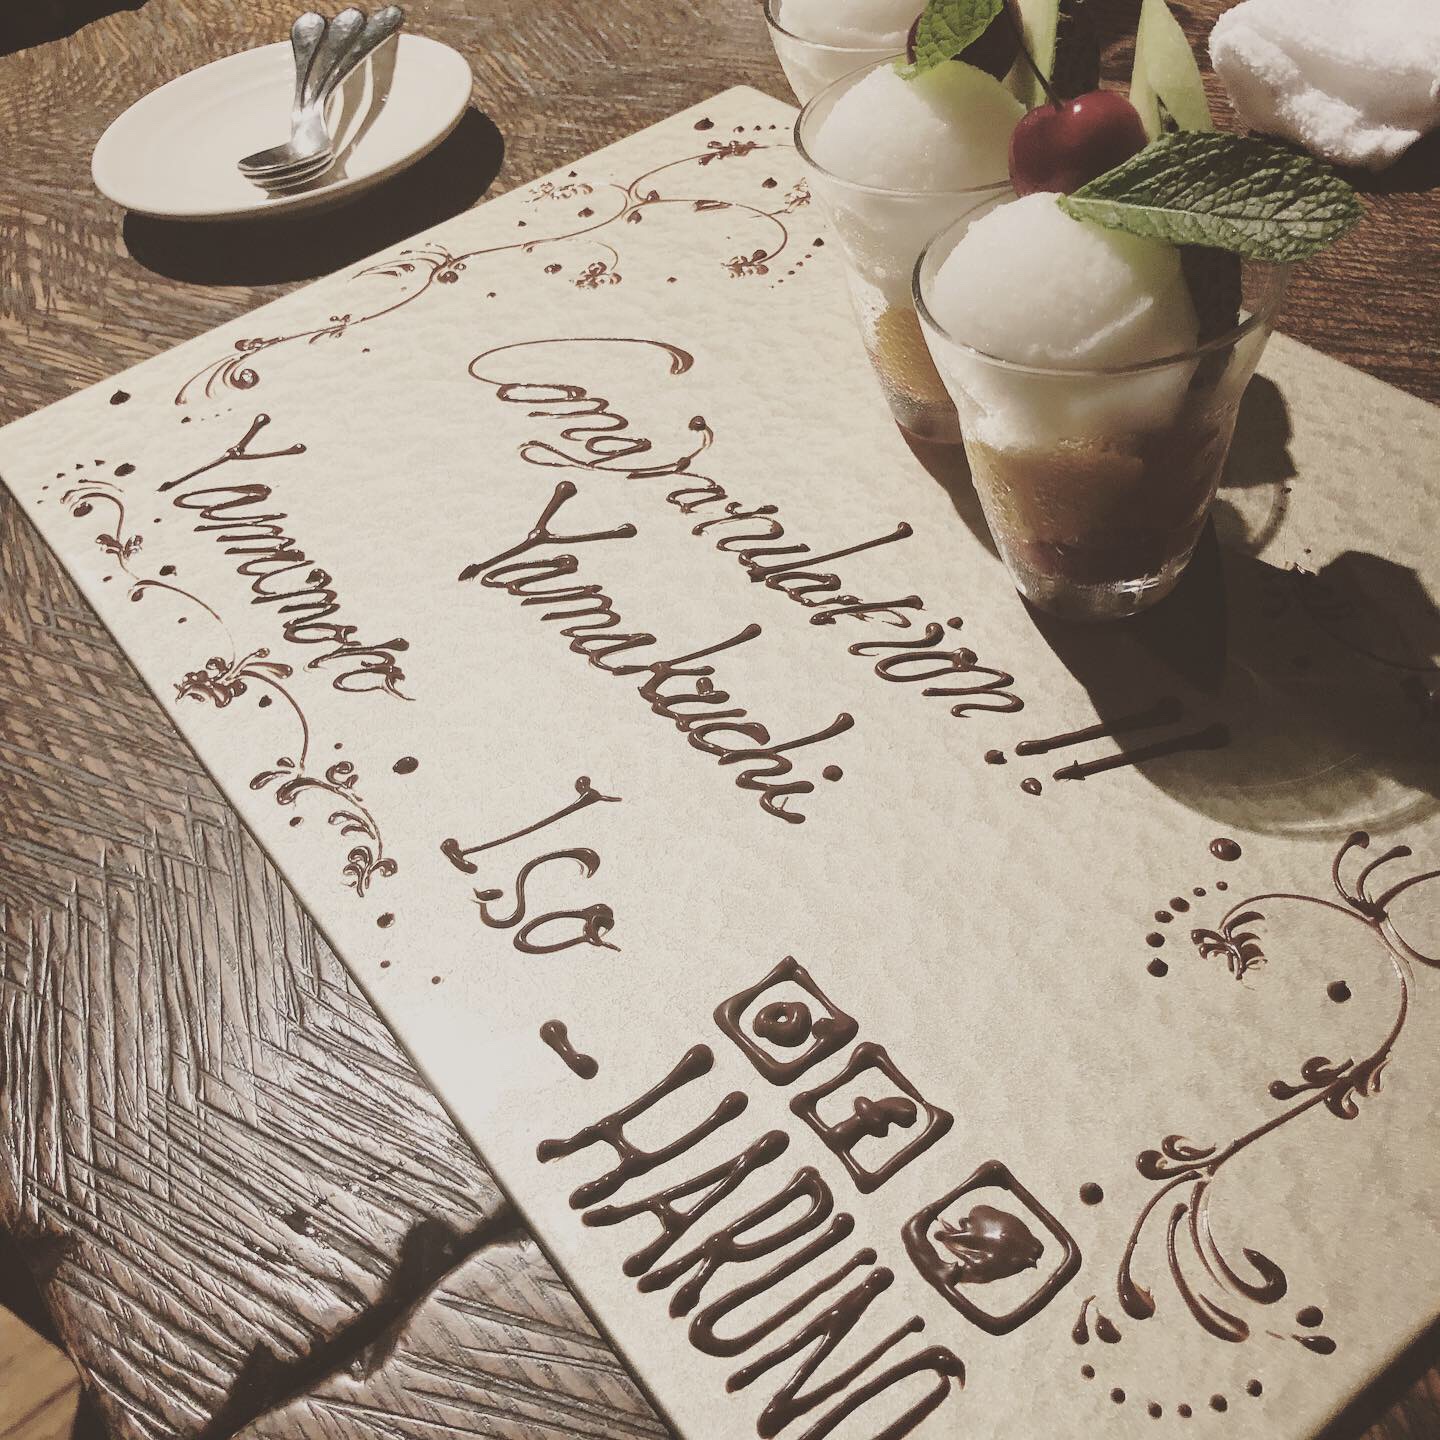 Congratulation!!
Yamakuchi
Yamamoto
Iso
- HARUNO